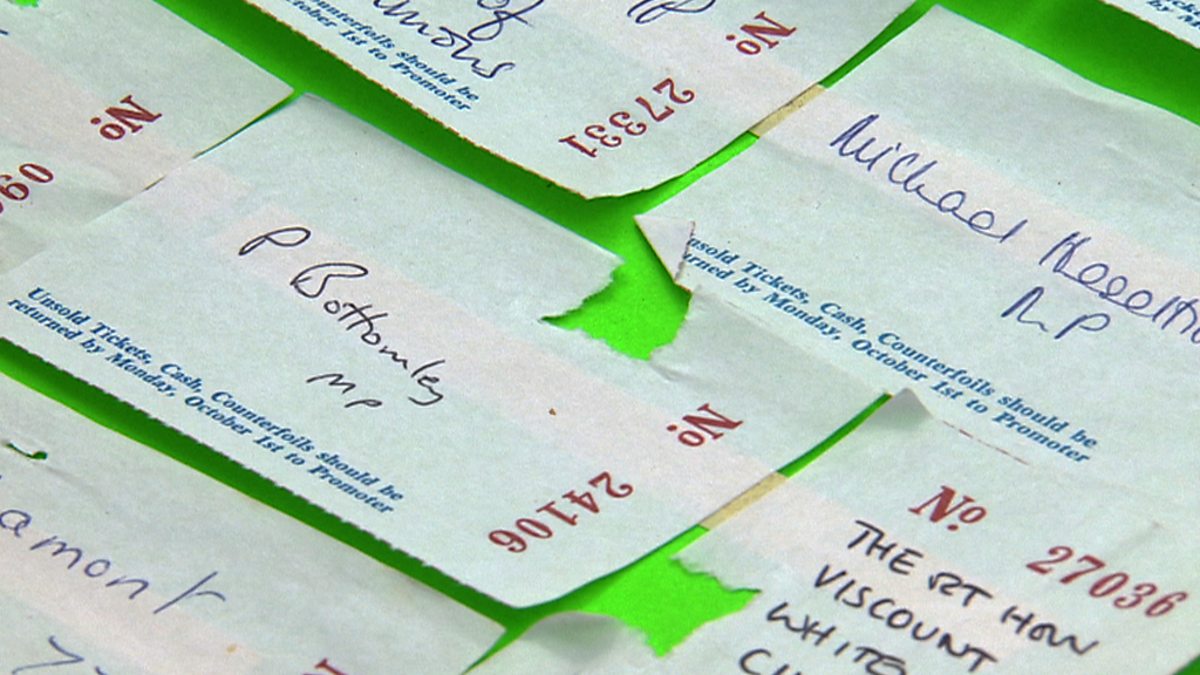 of
Counterfoils should be
October 1st to Promoter
No.
27331
No.
P Bottomley
MP
Unsold Tickets, Cash, Counterfoils should be
returned by Monday, October 1st to Promoter
No.
24106
Michael
MP
Unsold Tickets, Cash, Counterfoils should be
returned by Monday, October 1st to Promoter
No.
27036
THE RT HON
VISCOUNT
amont